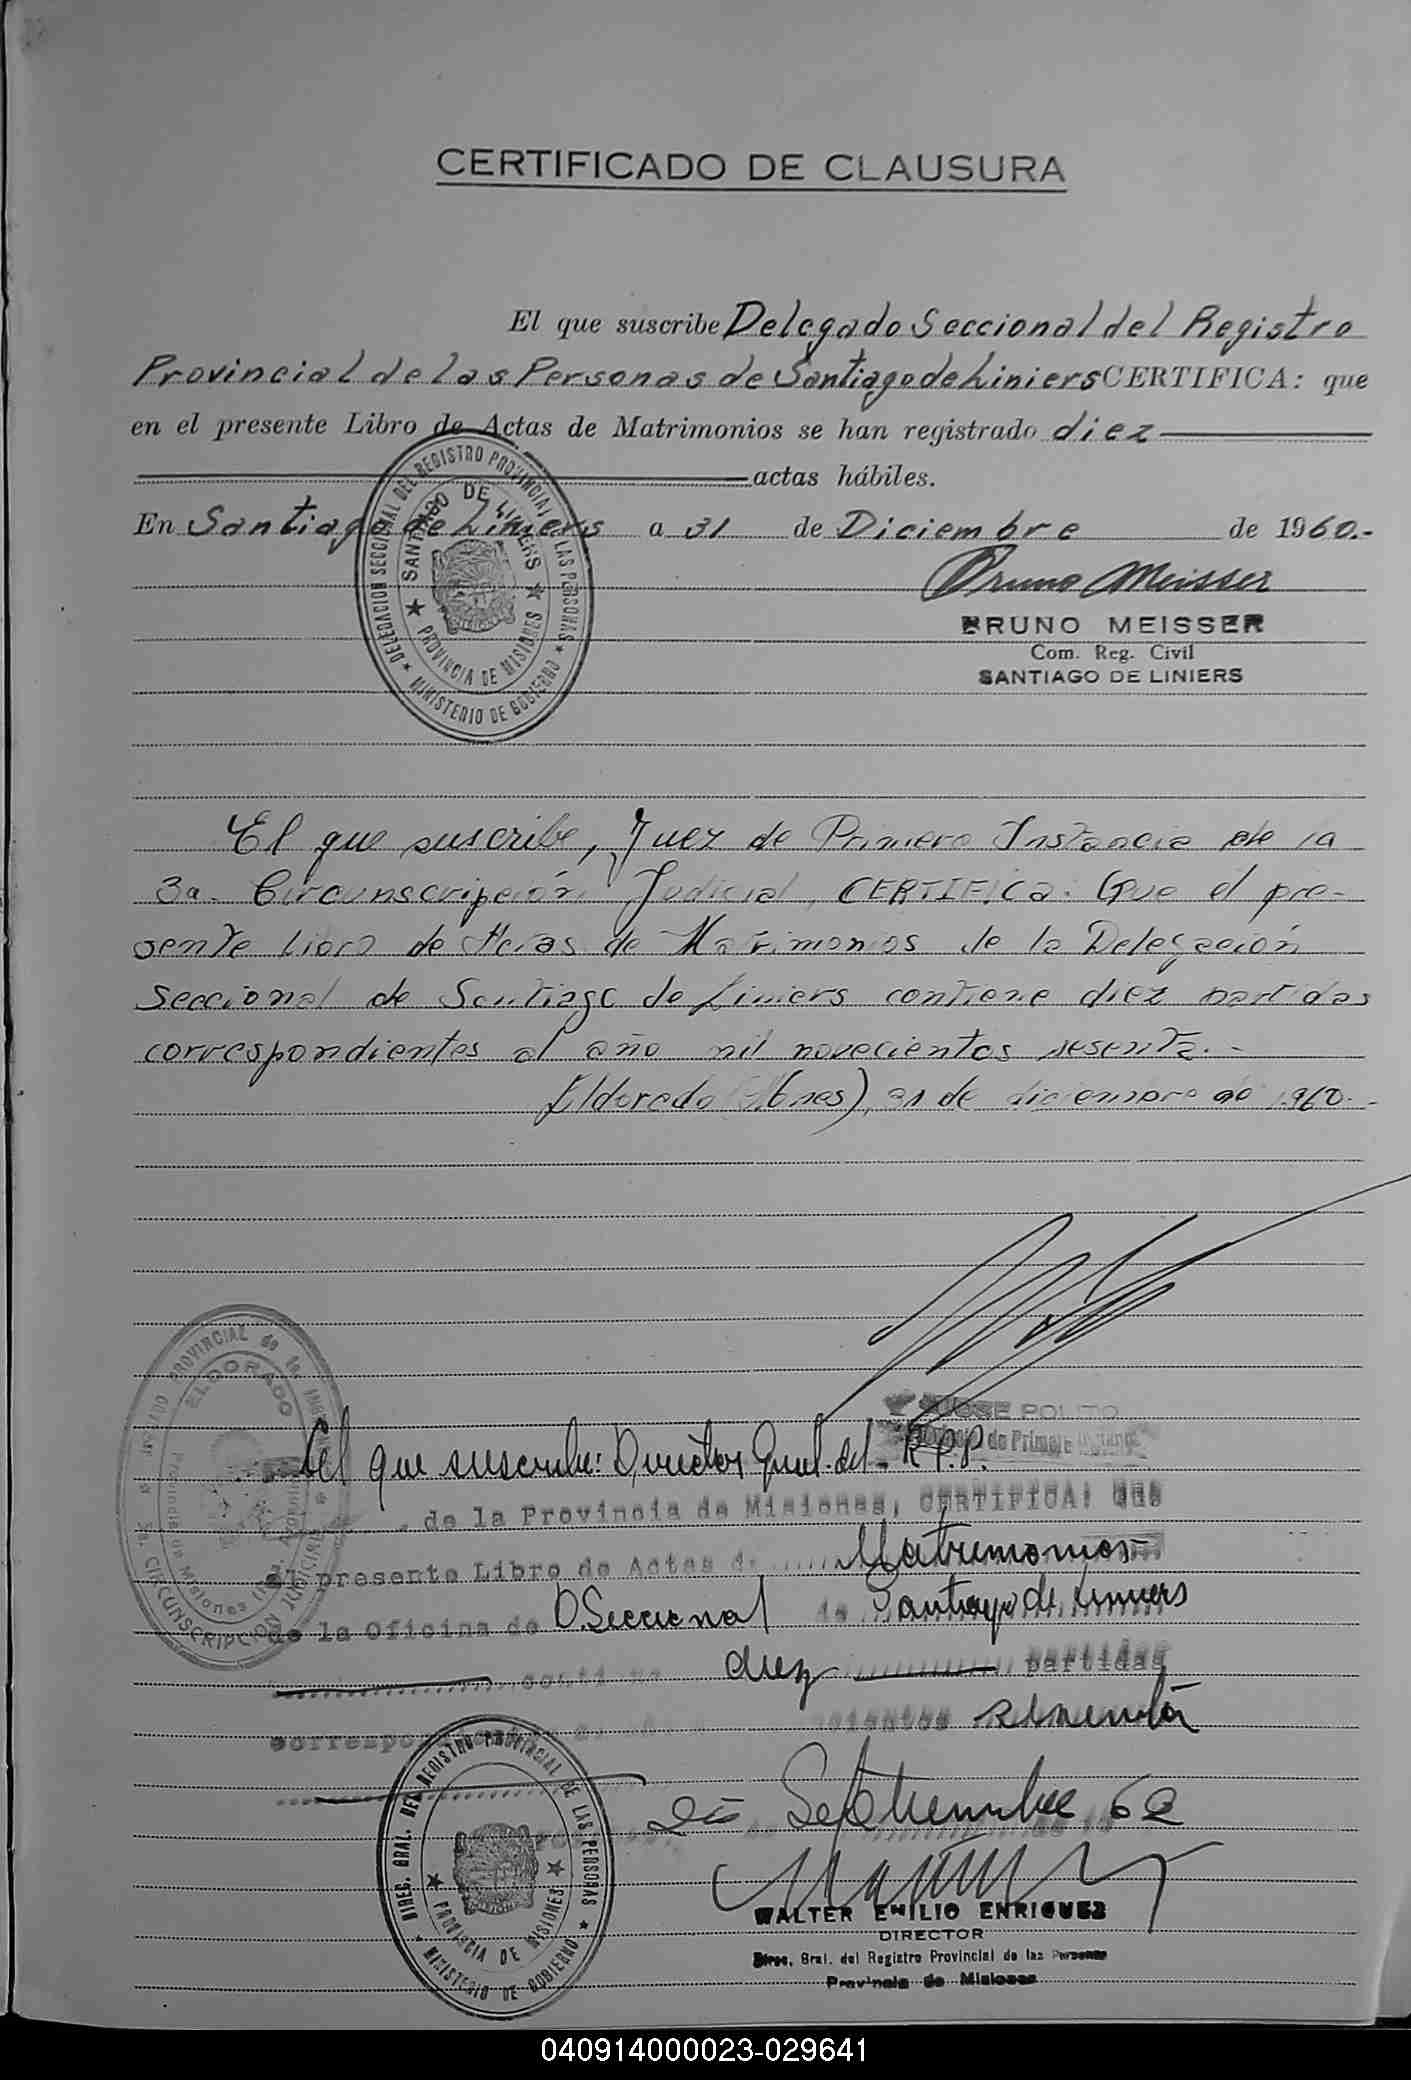 CERTIFICADO DE CLAUSURA
El que suscribe Delegado Seccional del Registro
Provincial de las Personas de Santiago de Liniers CERTIFICA: que
en el presente Libro de Actas de Matrimonios se han registrado diez
actas hábiles.
En Santiago de Liniers a 31 de Diciembre de 1960.-
DELEGACION SECCIONAL DEL REGISTRO PROVINCIAL LAS PERSONAS
SANTIAGO DE LINIERS
PROVINCIA DE MISIONES
MINISTERIO DE GOBIERNO
Bruno Meisser
BRUNO MEISSER
Com. Reg. Civil
SANTIAGO DE LINIERS
El que suscribe, Juez de Primera Instancia de la
3a. Circunscripción Judicial, CERTIFICA: Que el pre-
sente Libro de Actas de Matrimonios de la Delegación
Seccional de Santiago de Liniers contiene diez partidas
correspondientes al año mil novecientos sesenta.-
Eldorado (Mnes), 31 de diciembre de 1960.-
JOSE POLITO
de Primera
PROVINCIAL de la
ELDORADO
Provincia de Misiones
CIRCUNSCRIPCION JUDICIAL
El que suscribe: Director Gral. del R.P.P.
de la Provincia de Misiones, CERTIFICA: Que
el presente Libro de Actas de Matrimonios
de la Oficina de D. Seccional de Santiago de Liniers
diez partidas
sesenta
Septiembre 62
DIREC. GRAL. DEL REGISTRO PROVINCIAL DE LAS PERSONAS
PROVINCIA DE MISIONES
MINISTERIO DE GOBIERNO
WALTER EMILIO ENRIQUEZ
DIRECTOR
Direc. Gral. del Registro Provincial de las Personas
Provincia de Misiones
040914000023-029641